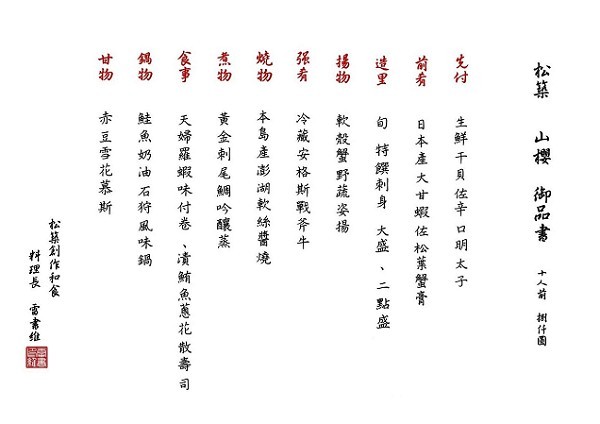 松築 山櫻 御品書 十人前 捌仟圓
先付 生鮮干貝佐辛口明太子
前肴 日本產大甘蝦佐松葉蟹膏
造里 旬 特饌刺身 大盛、二點盛
揚物 軟殼蟹野蔬姿揚
强肴 冷藏安格斯戰斧牛
燒物 本島產澎湖軟絲醬燒
煮物 黃金刺尾鯛吟釀蒸
食事 天婦羅蝦味付卷、漬鮪魚蔥花散壽司
鍋物 鮭魚奶油石狩風味鍋
甘物 赤豆雪花慕斯
松築創作和食
料理長 雷書維